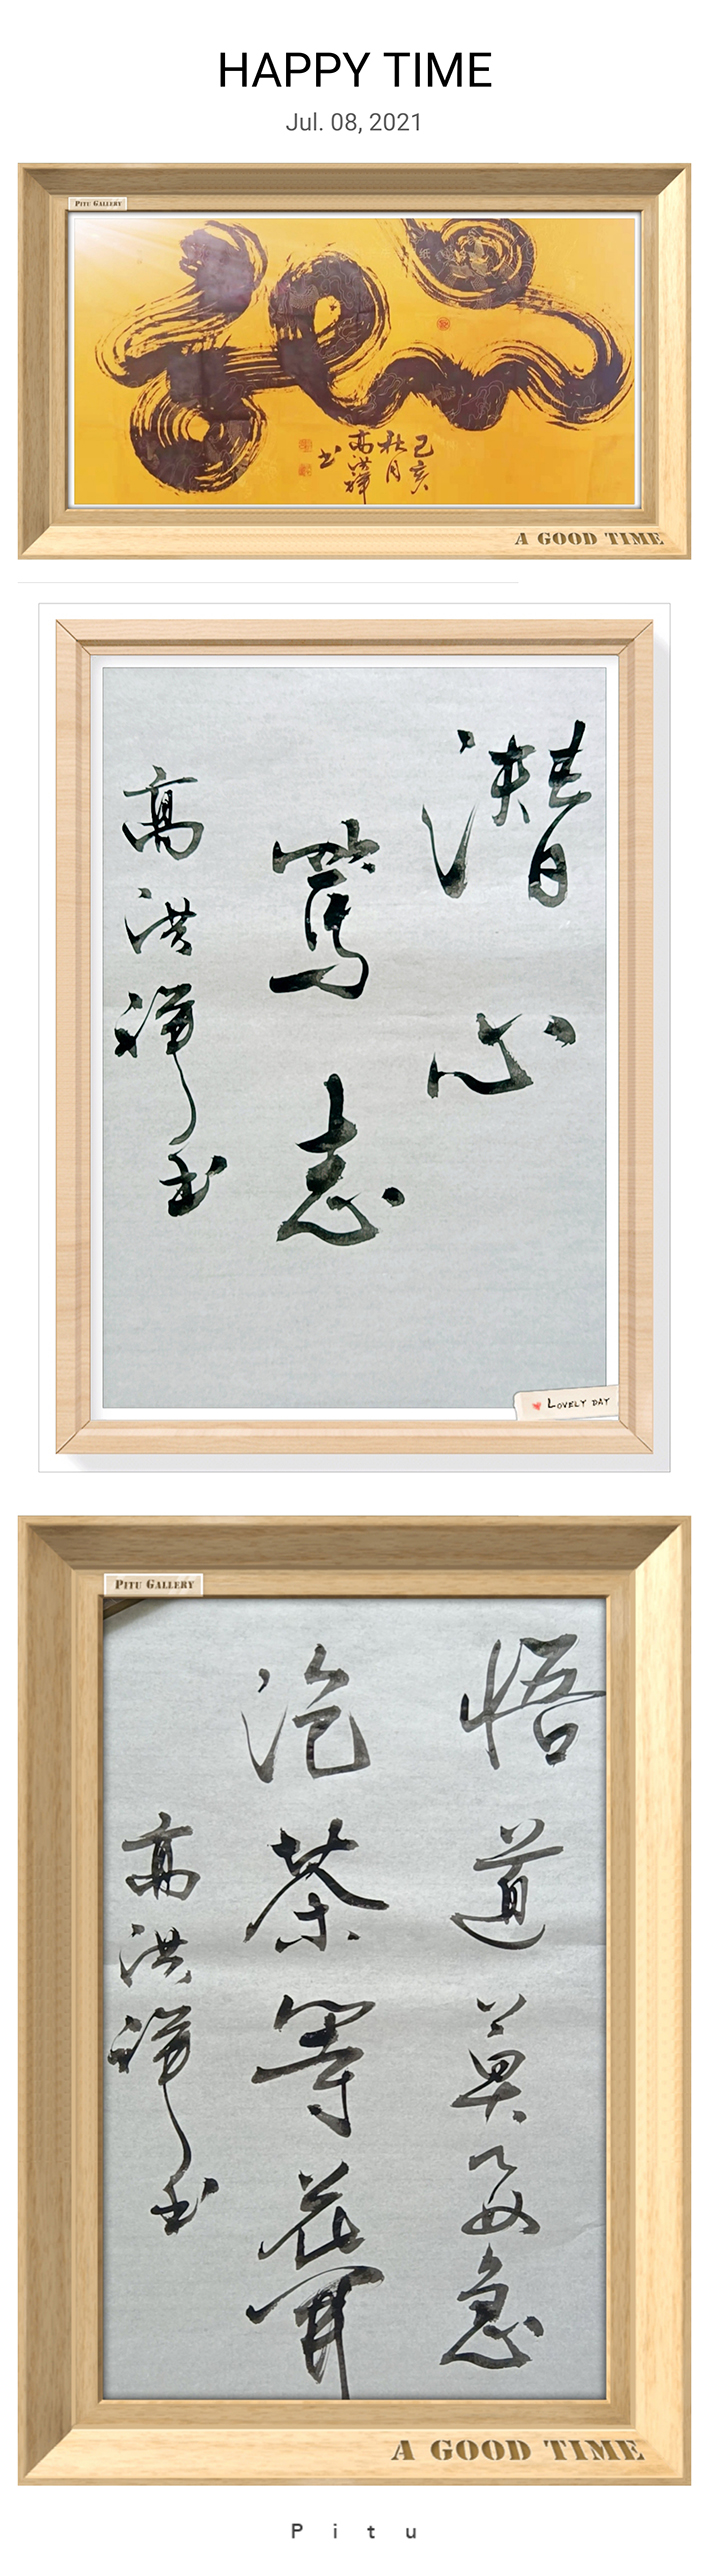 HAPPY TIME
Jul. 08, 2021
PITU GALLERY
己亥
秋月
高洪禅
书
A GOOD TIME
潜心
笃志
高洪禅书
LOVELY DAY
PITU GALLERY
悟道莫要急
沏茶等花开
高洪禅书
A GOOD TIME
Pitu